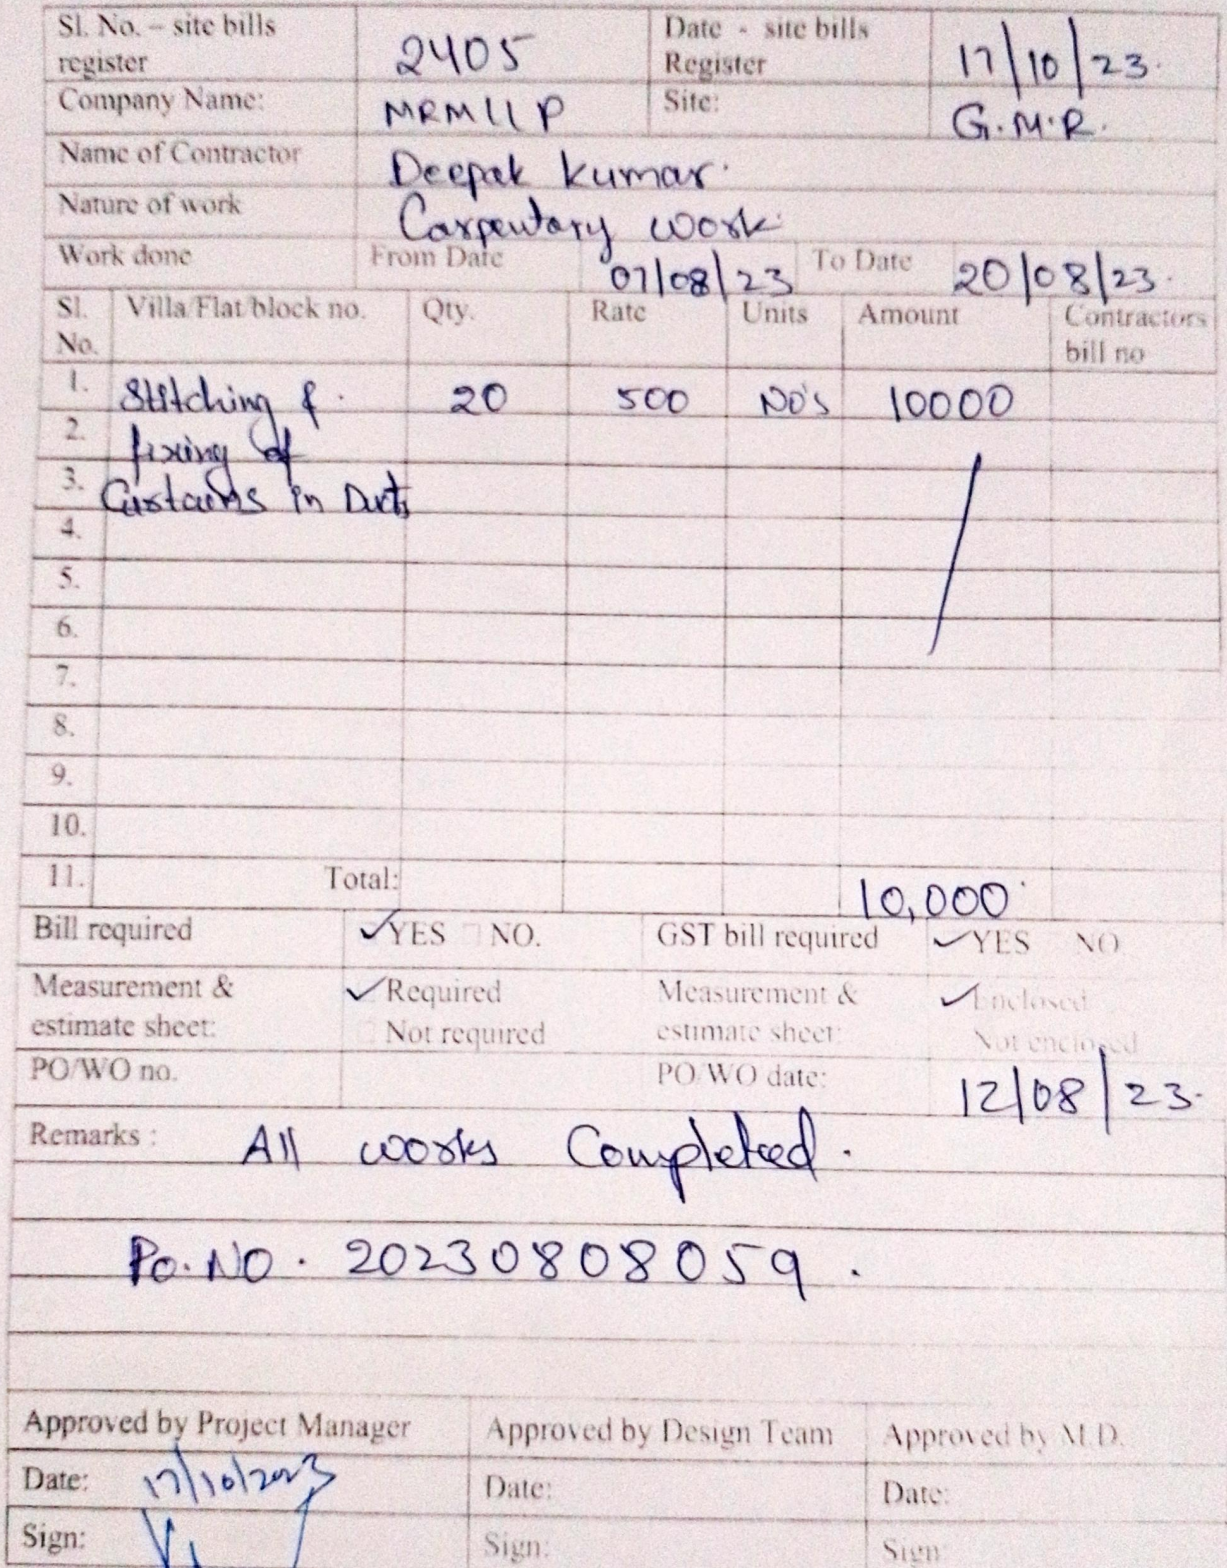 Sl. No. – site bills register 2405 Date - site bills Register 17/10/23.
Company Name: MRMLLP Site: G.M.R.
Name of Contractor Deepak Kumar.
Nature of work Carpentary work.
Work done From Date 07/08/23 To Date 20/08/23.
Sl. No. Villa/Flat/block no. Qty. Rate Units Amount Contractors bill no
1. Stitching & 20 500 No's 10000
2. fixing of
3. Curtains in Ducts
4.
5.
6.
7.
8.
9.
10.
11. Total: 10,000
Bill required ✓YES NO. GST bill required ✓YES NO
Measurement & estimate sheet: ✓Required Not required Measurement & estimate sheet: ✓Enclosed Not enclosed
PO/WO no. PO/WO date: 12/08/23.
Remarks : All works Completed.
Po. NO. 20230808059.
Approved by Project Manager Approved by Design Team Approved by M.D.
Date: 17/10/2023 Date: Date:
Sign: Sign: Sign: